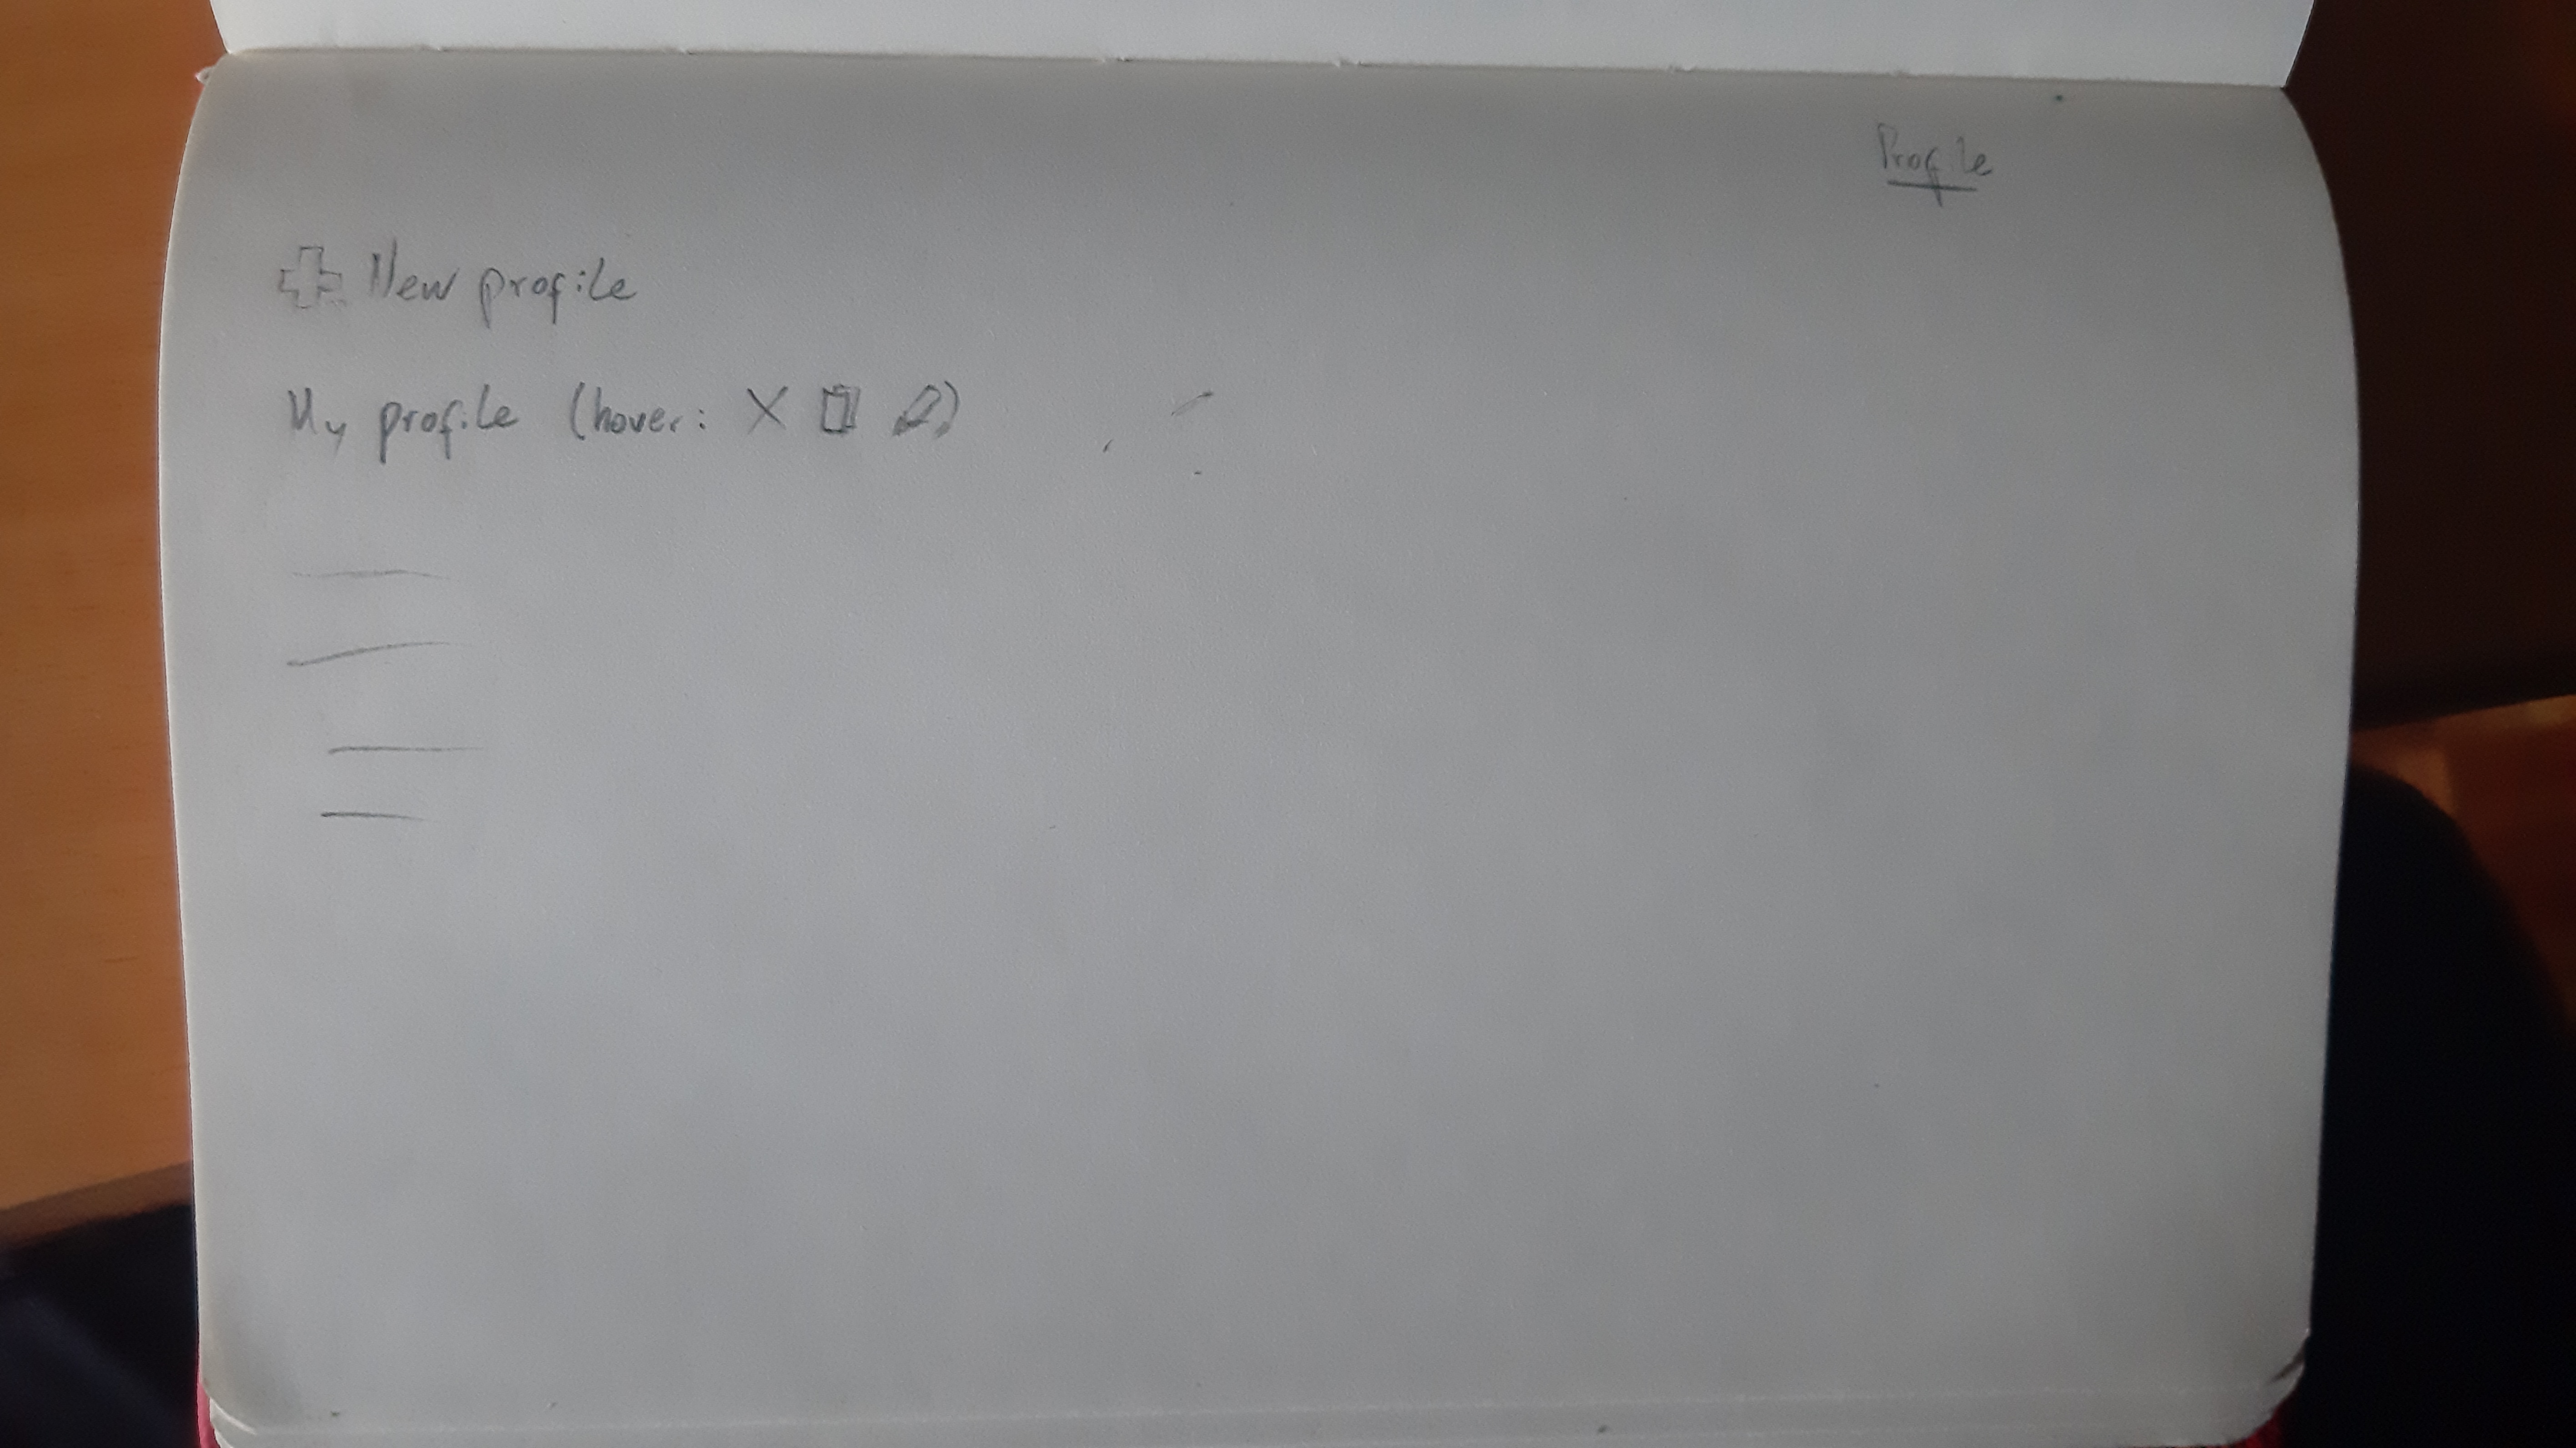 Profile
New profile
My profile (hover: X )